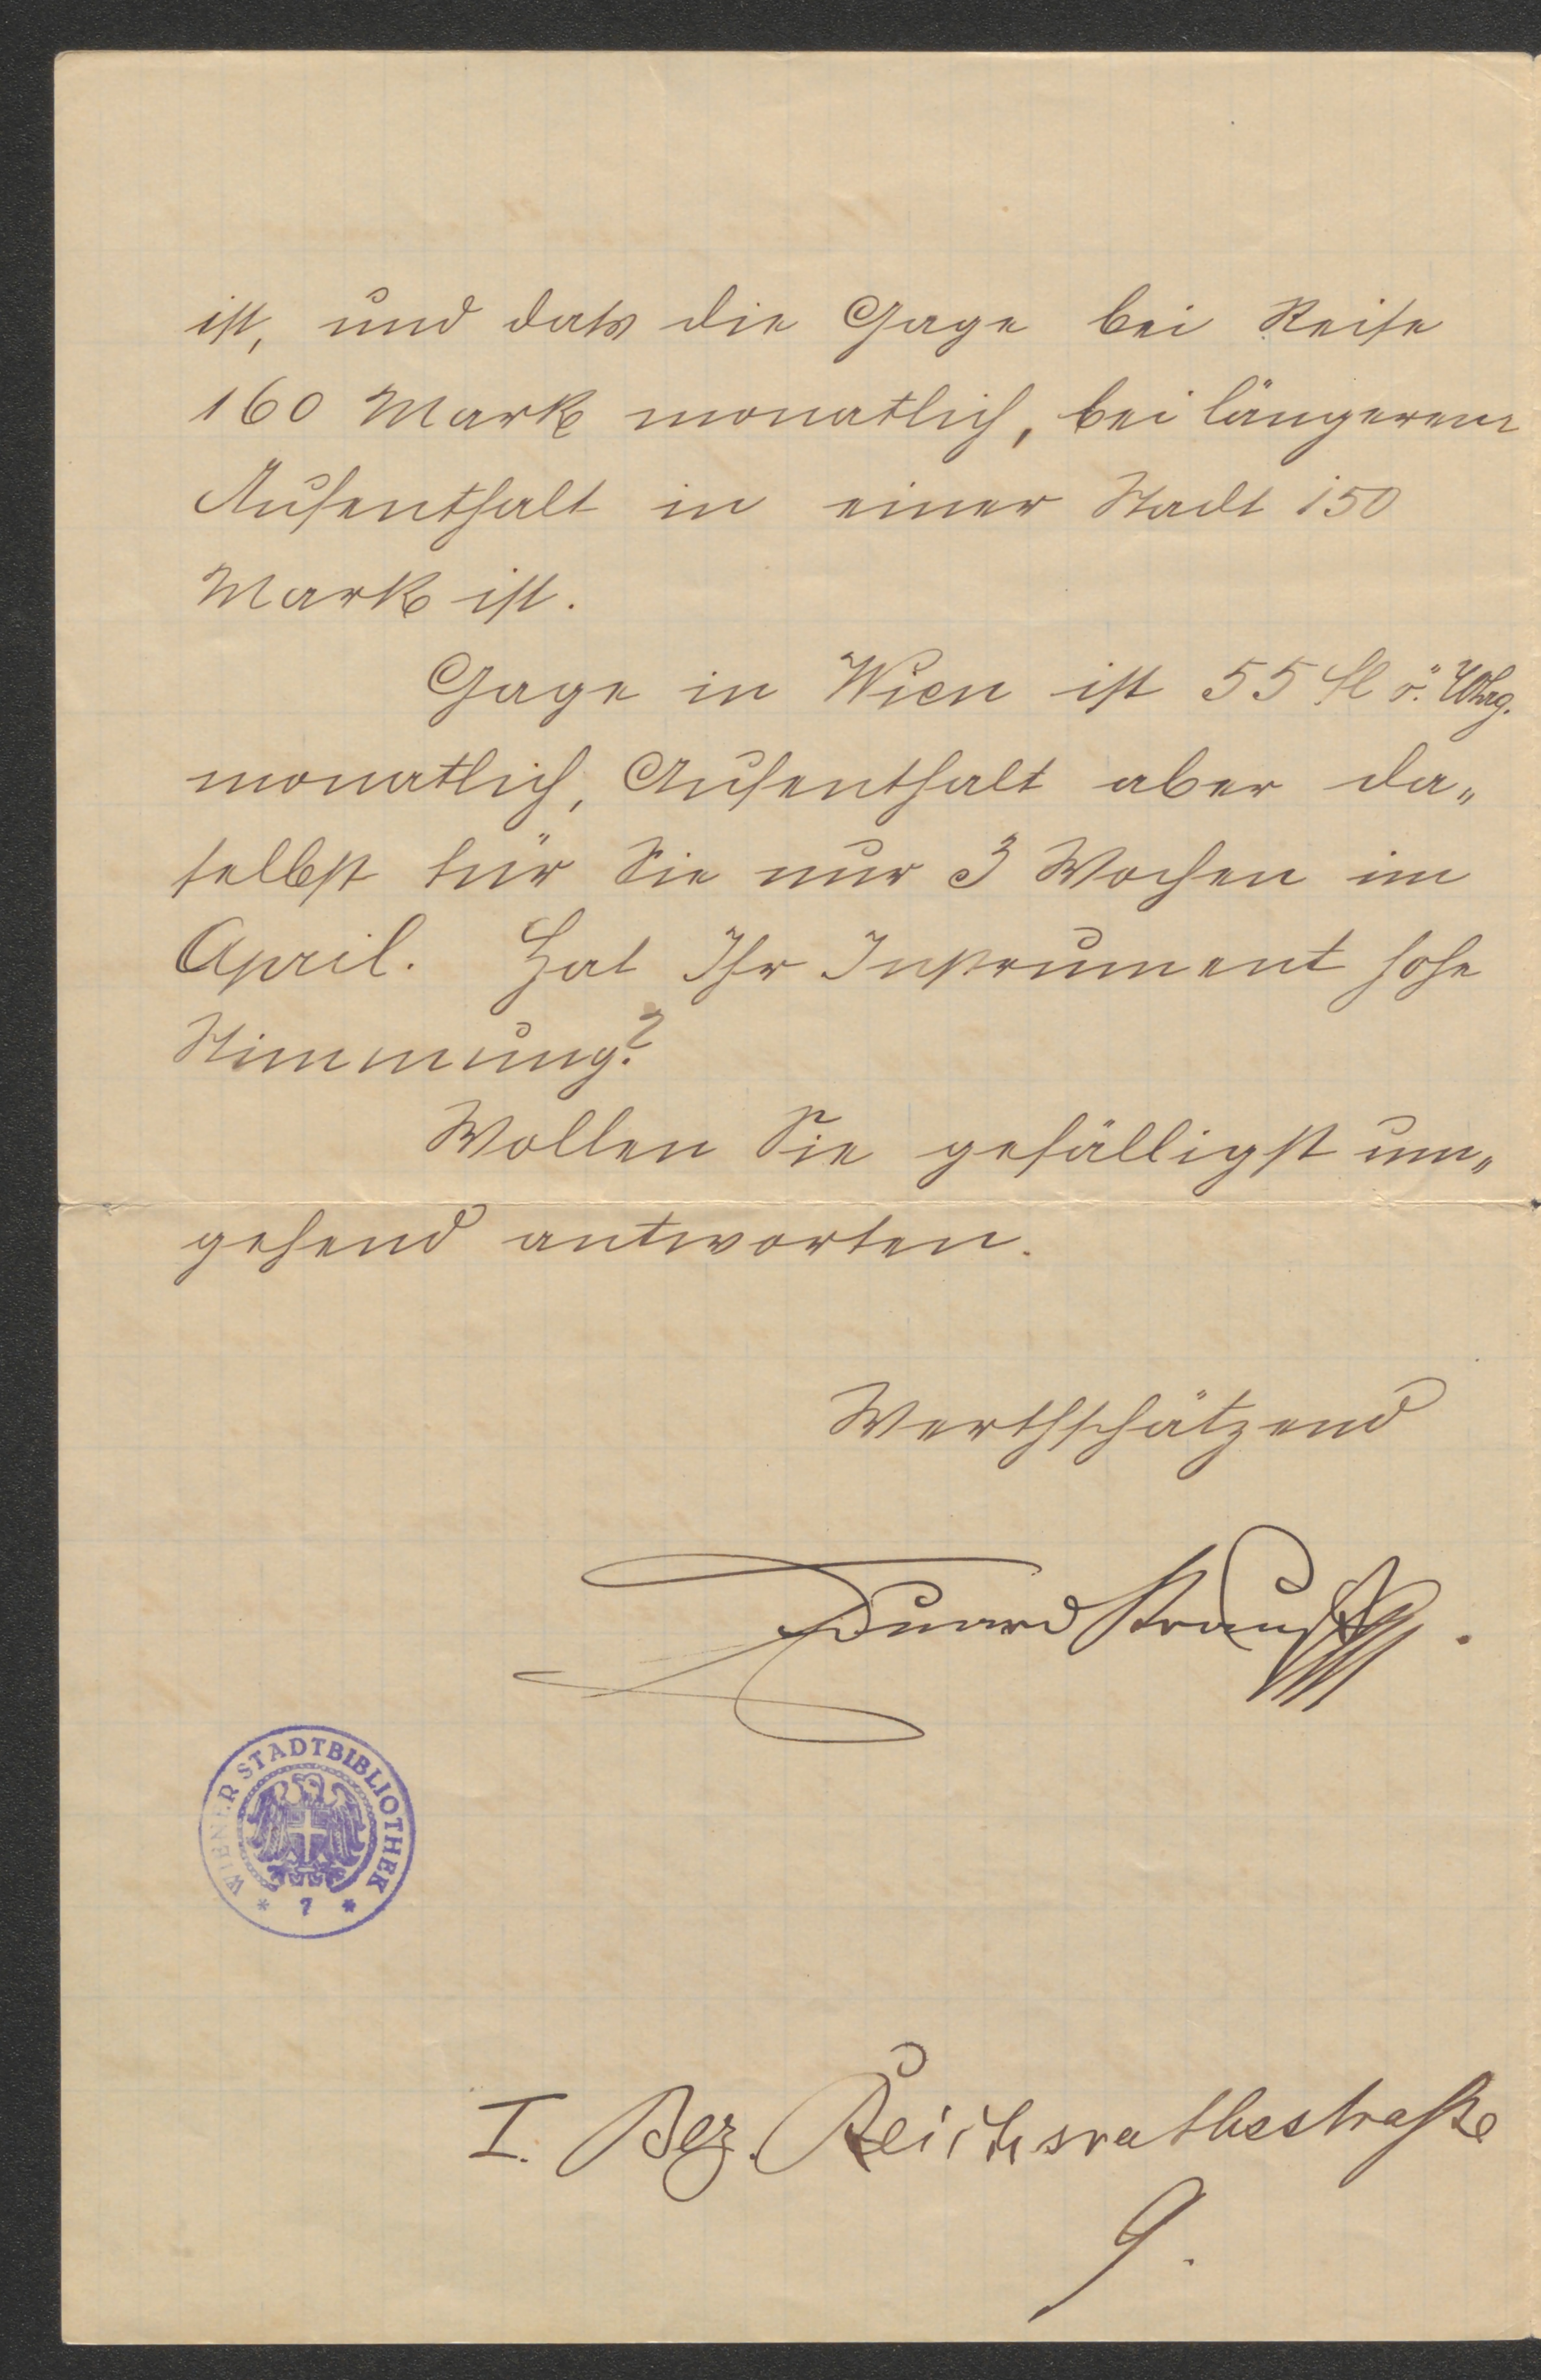 ist, und dass die Gage bei Reise
160 Mark monatlich, bei längerem
Aufenthalt in einer Stadt 150
Mark ist.
Gage in Wien ist 55 fl ö. Whrg.
monatlich, Aufenthalt aber da„
selbst für Sie nur 3 Wochen im
April. Hat Ihr Instrument hohe
Stimmung?
Wollen Sie gefälligst um„
gehend antworten.
Werthschätzend
Eduard Strauß.
WIENER STADTBIBLIOTHEK
* 7 *
I. Bez. Reichsrathsstraße
9.